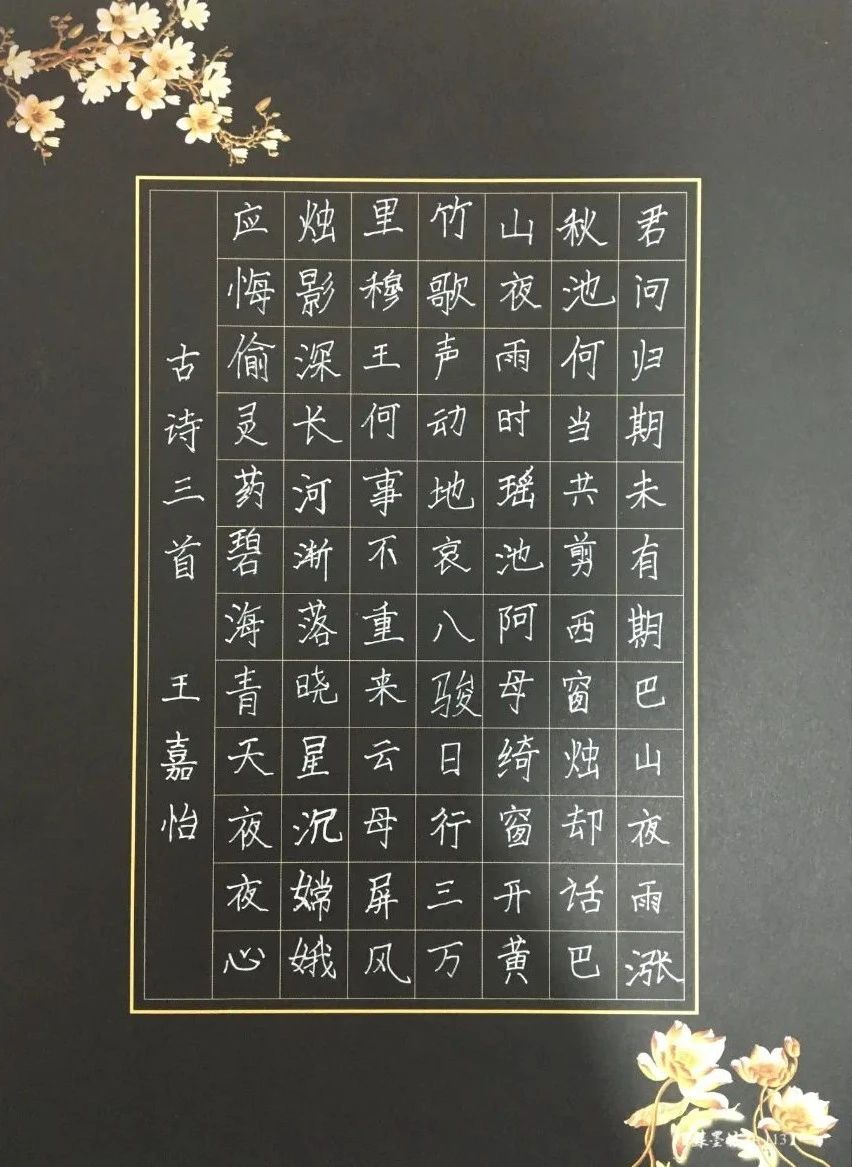 君问归期未有期巴山夜雨涨
秋池何当共剪西窗烛却话巴
山夜雨时瑶池阿母绮窗开黄
竹歌声动地哀八骏日行三万
里穆王何事不重来云母屏风
烛影深长河渐落晓星沉嫦娥
应悔偷灵药碧海青天夜夜心
古诗三首 王嘉怡